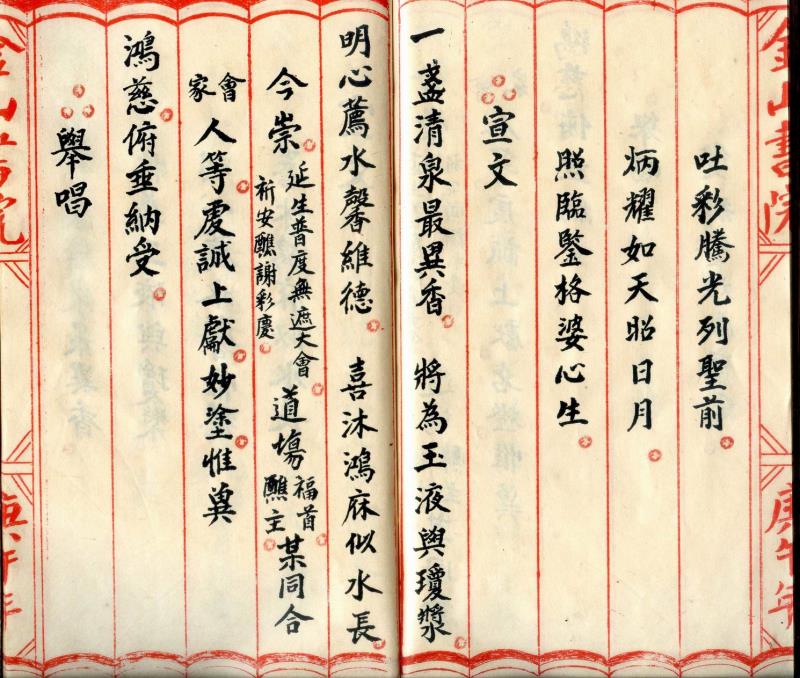 金山書院 庚午年
吐彩騰光列聖前
炳耀如天昭日月
照臨鑒格婆心生
宣文
一盞清泉最異香 將為玉液與瓊漿
明心薦水馨維德 喜沐鴻庥似水長
今崇 延生普度無遮大會 祈安醮謝彩慶 道塲 福首 醮主 某同合
會家人等虔誠上獻妙塗惟奠
鴻慈俯垂納受
舉唱
金山書院 庚午年